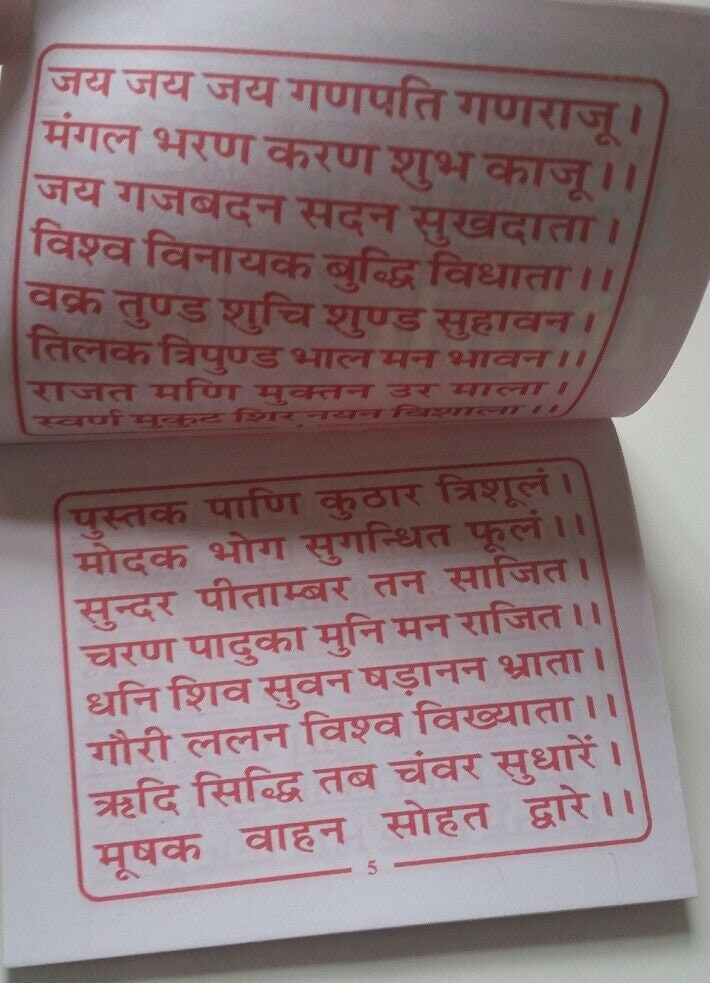 जय जय जय गणपति गणराजू ।
मंगल भरण करण शुभ काजू ।।
जय गजबदन सदन सुखदाता ।
विश्व विनायक बुद्धि विधाता ।।
वक्र तुण्ड शुचि शुण्ड सुहावन ।
तिलक त्रिपुण्ड भाल मन भावन ।।
राजत मणि मुक्तन उर माला ।
स्वर्ण मुकुट शिर नयन विशाला ।।
पुस्तक पाणि कुठार त्रिशूलं ।
मोदक भोग सुगन्धित फूलं ।।
सुन्दर पीताम्बर तन साजित ।
चरण पादुका मुनि मन राजित ।।
धनि शिव सुवन षड़ानन भ्राता ।
गौरी ललन विश्व विख्याता ।।
ऋदि सिद्धि तब चंवर सुधारें ।
मूषक वाहन सोहत द्वारे ।।
5